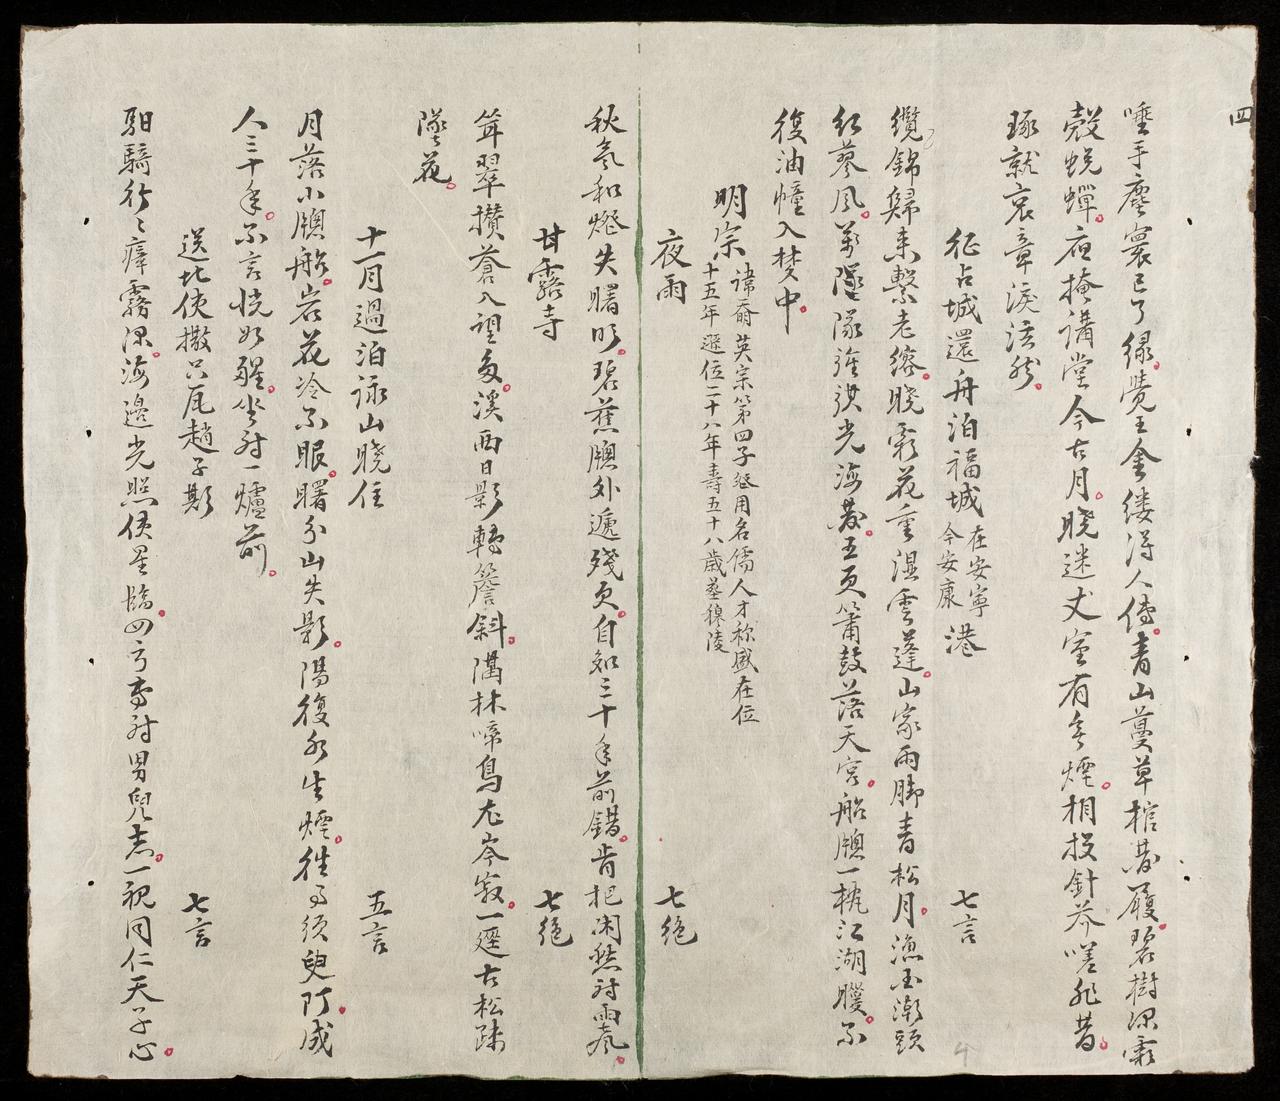 四
唾手塵寰已了緣覺王金縷得人傳青山蔓草棺藏履碧樹深霜
殼蛻蟬夜掩講堂今古月曉迷丈室有無煙相投針芥嗟非昔
琢就哀章淚泫然
征占城還舟泊福城在安寧今安康港 七言
纜錦歸來繫老榕曉霜花重濕雲蓬山家雨脚青松月漁国潮頭
紅蓼風萬隊旌旗光海藏五更簫鼓落天宮船牕一枕江湖暖不
復油幢入梦中
明宗諱奣英宗第四子継用名儒人才称盛在位
十五年遜位二十八年壽五十八歲塟穆陵
夜雨 七絕
秋氣和燈失曙明碧蕉牕外遞殘更自知三十年前錯肯把闲愁对雨聲
甘露寺 七絕
聳翠攢蒼入望多溪西日影轉簷斜隔林啼鳥尤岑寂一逕古松疎
墜花
十一月過泊詠山曉住 五言
月落小牕船岩花冷不眠曙分山失影陽復水生煙徃事須臾何成
人三十年不言恍如醒坐对一爐前
送北使撒只瓦趙子期 七言
馹騎行々瘴霧深海邊光照使星臨四方專对男兒志一視同仁天子心